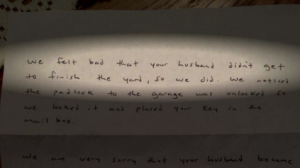 we felt bad that your husband didn't get
to finish the yard, so we did. We noticed
the padlock to the garage was unlocked so
we locked it and placed your key in the
mail box.
We are very sorry that your husband became